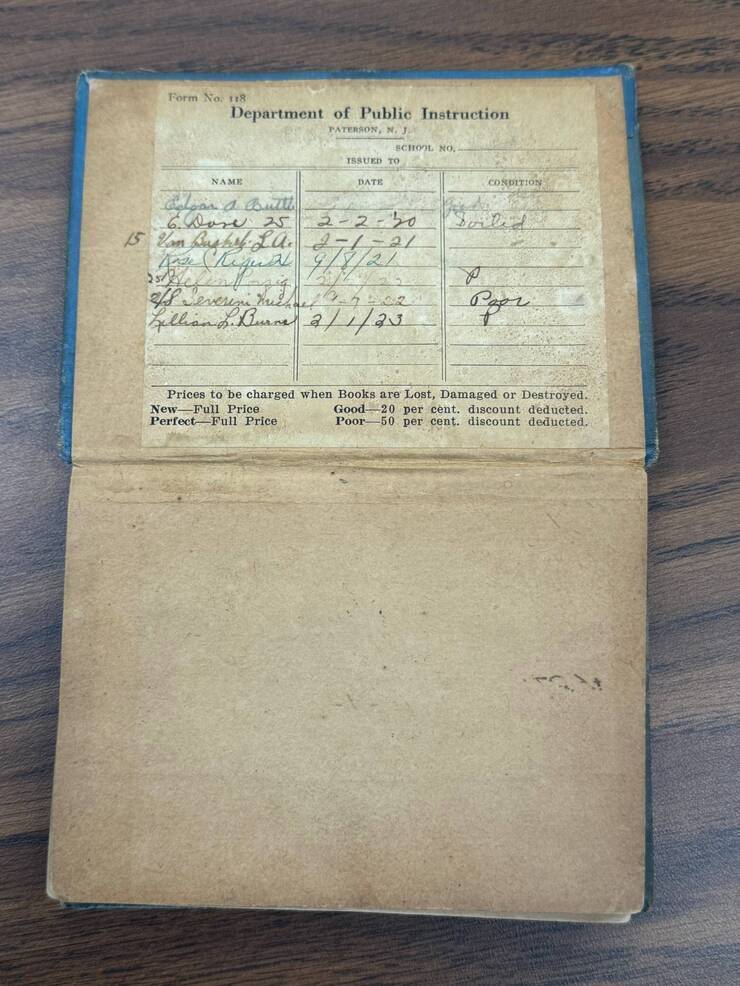 Form No. 118
Department of Public Instruction
PATERSON, N. J.
SCHOOL NO.
ISSUED TO
NAME DATE CONDITION
Edgar A
E. Dore 25 2-2-'20 Soiled
15 Van L.A. 2-1-21
Rose 9/8/21
25 Helen P
Severini Michael -7-22 Poor
Lillian L. Burns 2/1/23 P
Prices to be charged when Books are Lost, Damaged or Destroyed.
New—Full Price Good—20 per cent. discount deducted.
Perfect—Full Price Poor—50 per cent. discount deducted.